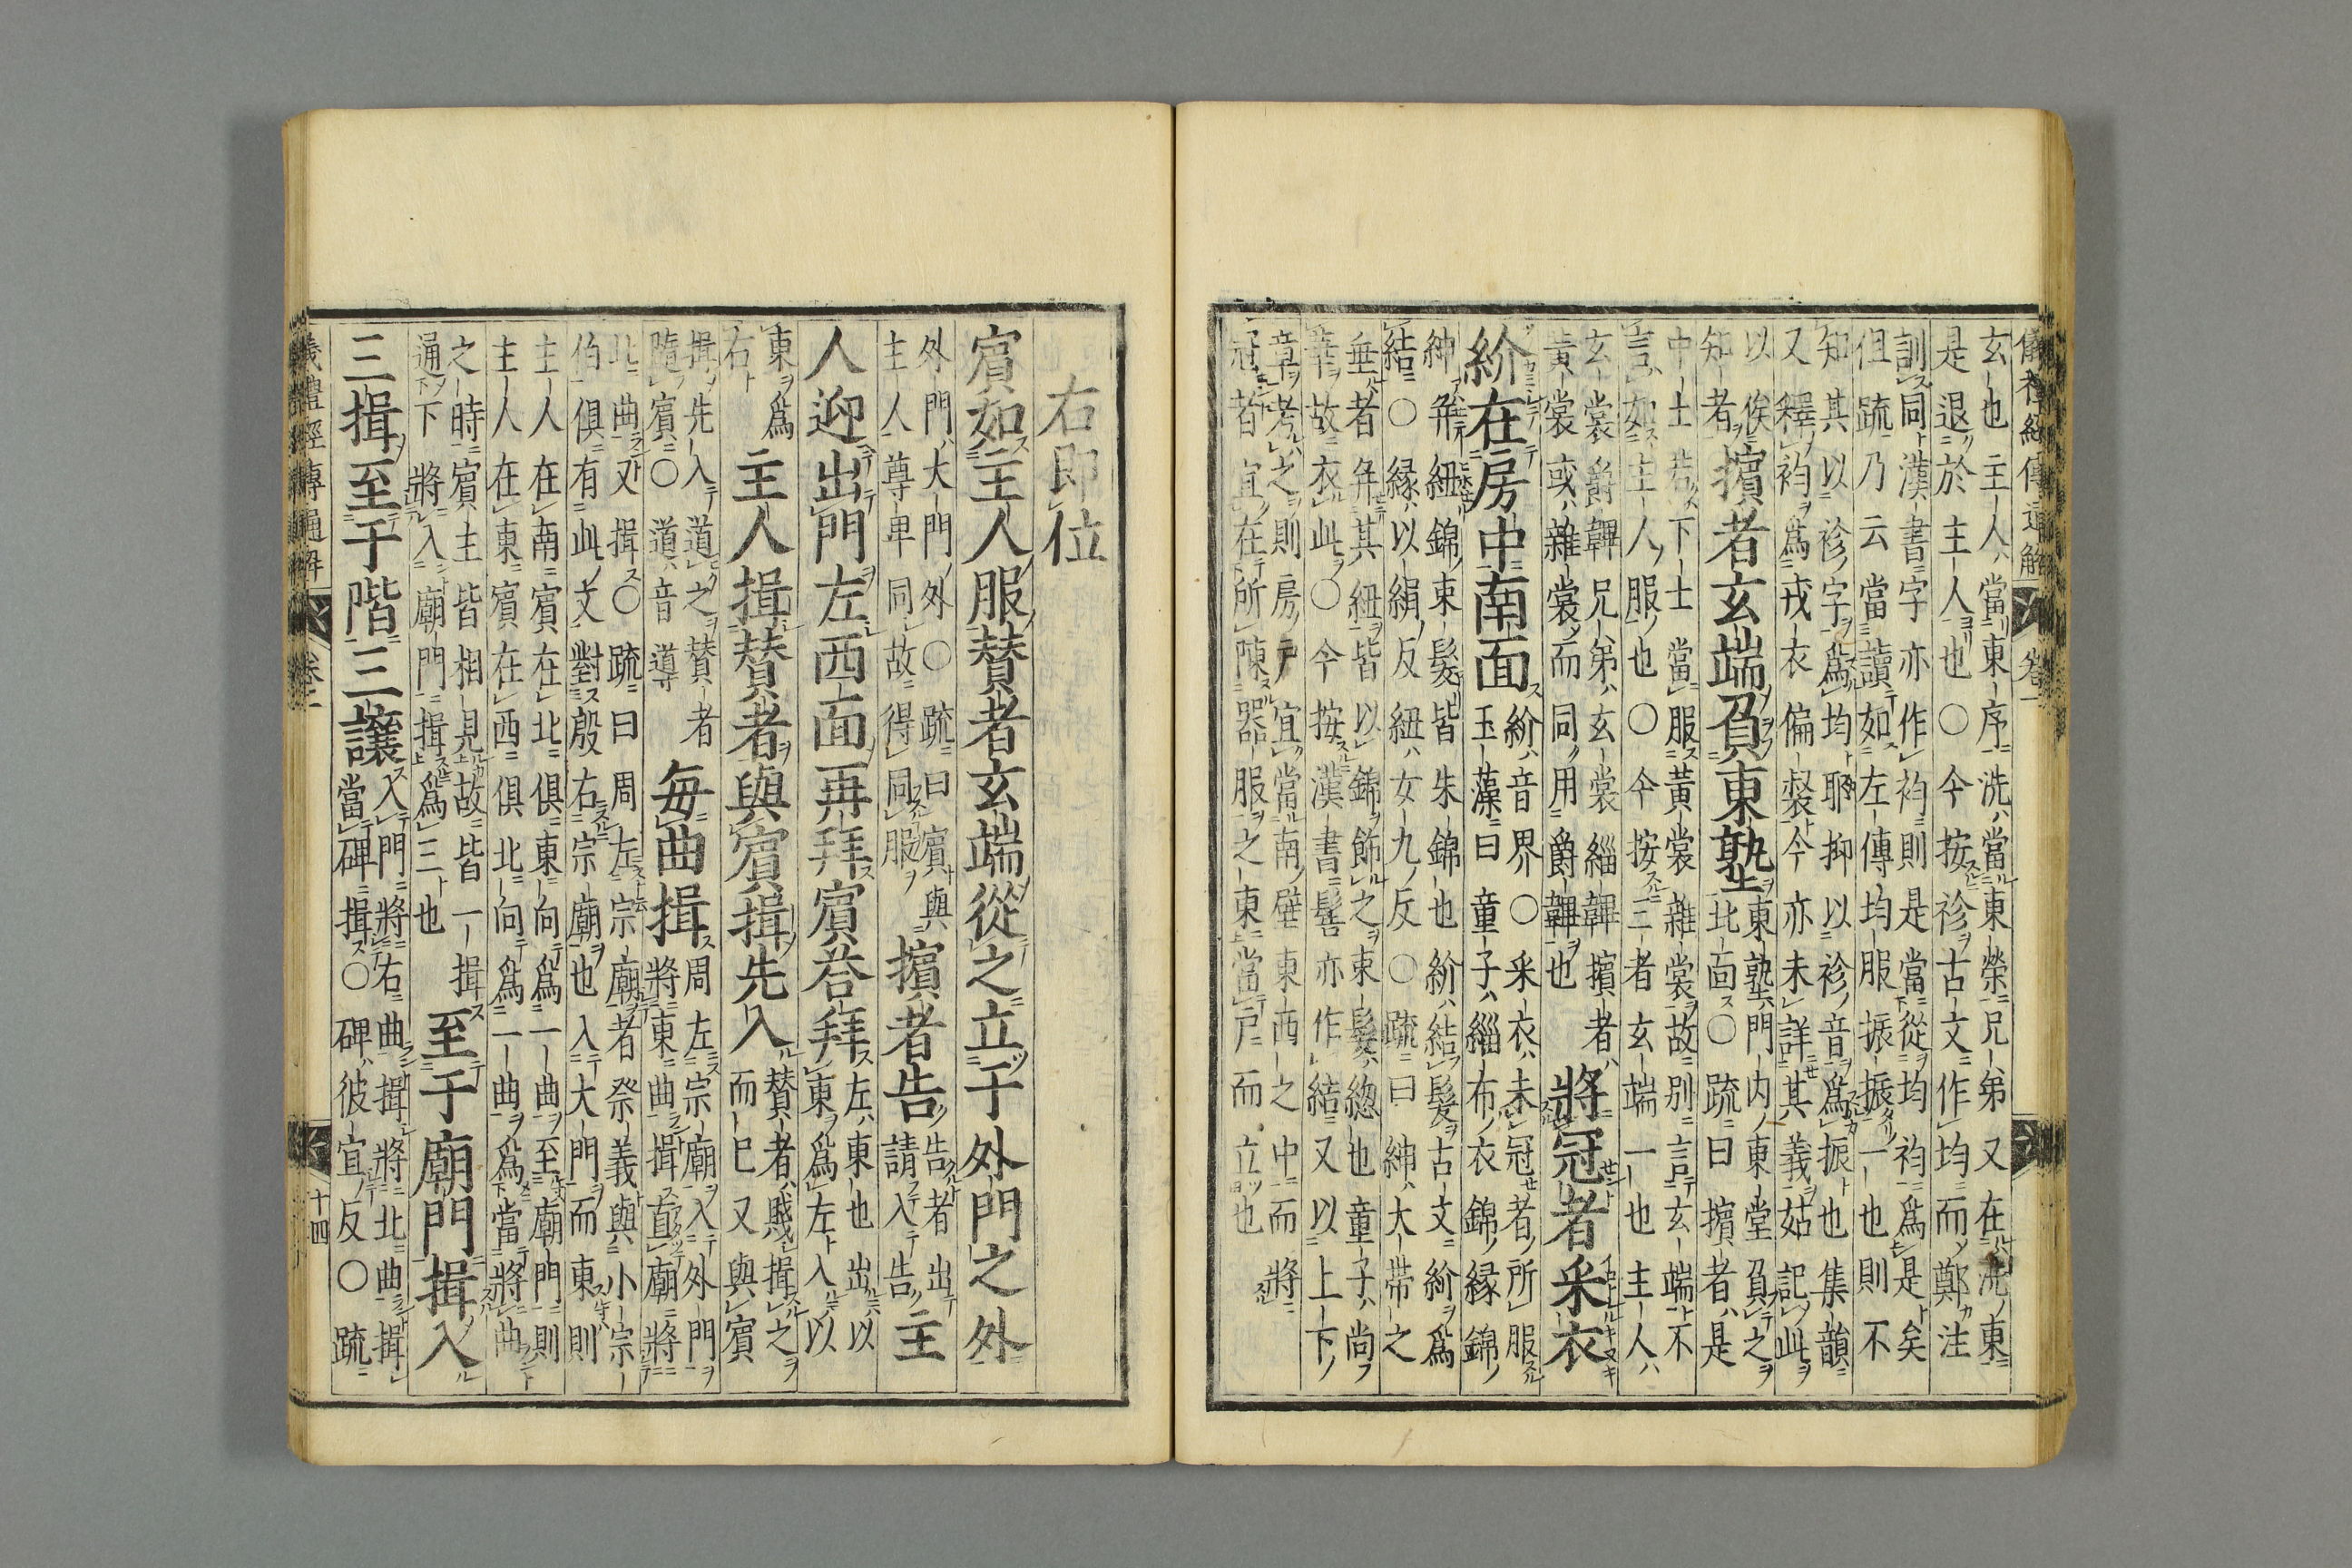 儀禮經傳通解 卷一
玄也主人當東序洗當東榮兄弟又在洗東
是退於主人也○今按袗古文作均而鄭注
訓同漢書字亦作袀則是當從均袀爲是矣
但疏乃云當讀如左傳均服振振一也則不
知其以袗字爲均耶抑以袗音爲振也集韻
又釋袀爲戎衣偏裻今亦未詳其義姑記此
以俟
知者
擯者玄端負東塾
東塾門内東堂負之
北面○疏曰擯者是
中士若下士當服黃裳雜裳故別言玄端不
言如主人服也○今按三者玄端一也主人
玄裳爵韠兄弟玄裳緇韠擯者
黃裳或雜裳而同用爵韠也
將冠者采衣
紒在房中南面
紒音界○采衣未冠者所服
玉藻曰童子緇布衣錦緣錦
紳幷紐錦束髮皆朱錦也紒結髮古文紒爲
結○緣以絹反紐女九反○疏曰紳大帶之
垂者幷其紐皆以錦飾之束髮總也童子尚
華故衣此○今按漢書髻亦作結又以上下
章考之則房戶宜當南壁東西之中而將
冠者宜在所陳器服之東當戶而立也
右即位
賓如主人服贊者玄端從之立于外門之外
外門大門外○疏曰賓與
主人尊卑同故得同服
擯者告
告者出
請入告
主
人迎出門左西面再拜賓荅拜
左東也出以
東爲左入以
東爲
右
主人揖贊者與賓揖先入
贊者賤揖之
而已又與賓
揖先入道之贊者
隨賓○道音導
每曲揖
周左宗廟入外門
將東曲揖直廟將
北曲又揖○疏曰周左宗廟者祭義與小宗
伯俱有此文對殷右宗廟也入大門而東則
主人在南賓在北俱東向爲一曲至廟門則
主人在東賓在西俱北向爲一曲爲當將曲
之時賓主皆相見故皆一揖
通下將入廟門揖爲三也
至于廟門揖入
三揖至于階三讓
入門將右曲揖將北曲揖
當碑揖○碑彼宜反○疏
儀禮經傳通解 卷一 十四